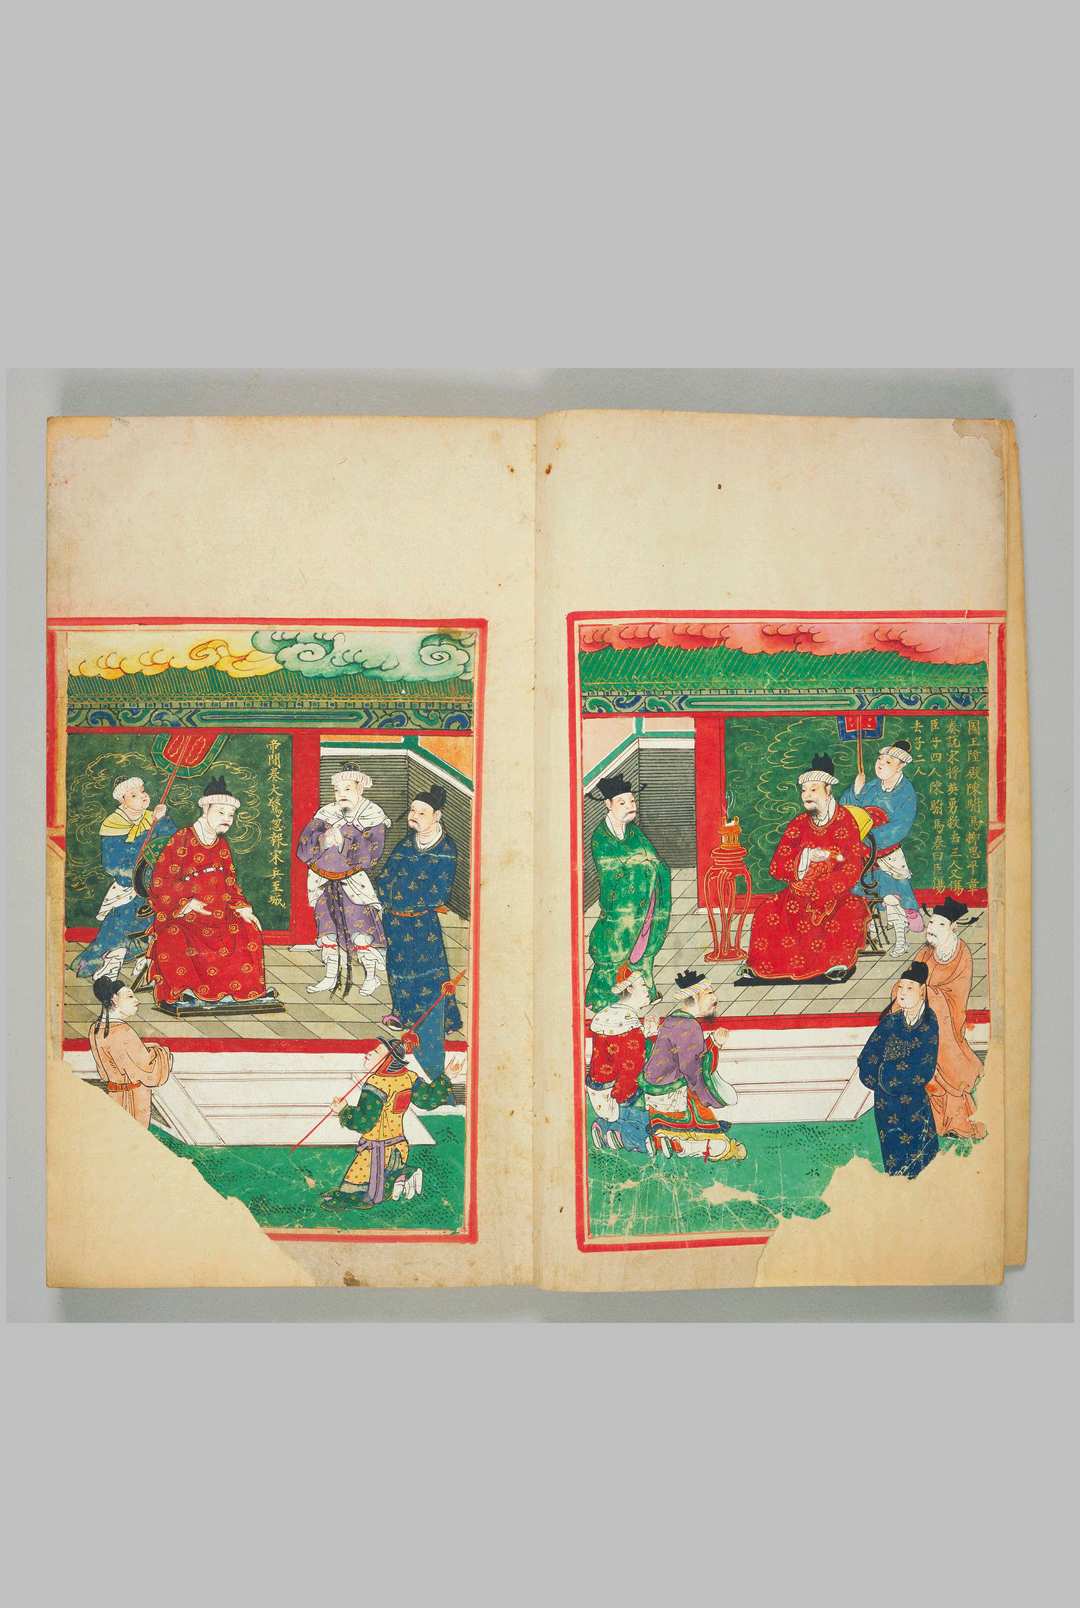 國王陞殿陳駙馬柳思平章
奏說宋將英勇殺去三人又傷
臣子四人陳駙馬奏曰臣傷
去子二人
帝聞奏大驚忽報宋兵至城